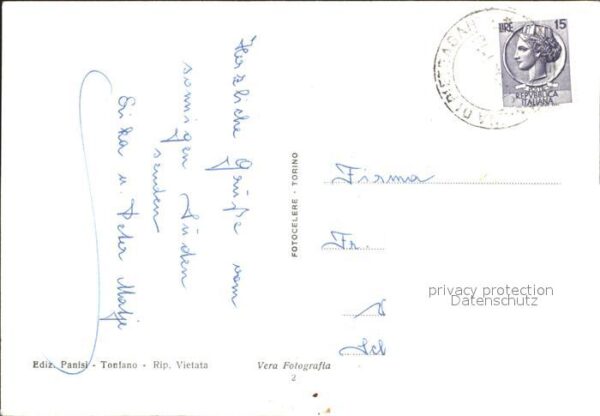 Herzliche Grüße vom
sonnigen Süden
senden
Erika u. Peter
FOTOCELERE - TORINO
LIRE 15
REPVBBLICA
ITALIANA
Firma
Fr.
privacy protection
Datenschutz
Ediz. Panisi - Tonfano - Rip. Vietata
Vera Fotografia
2